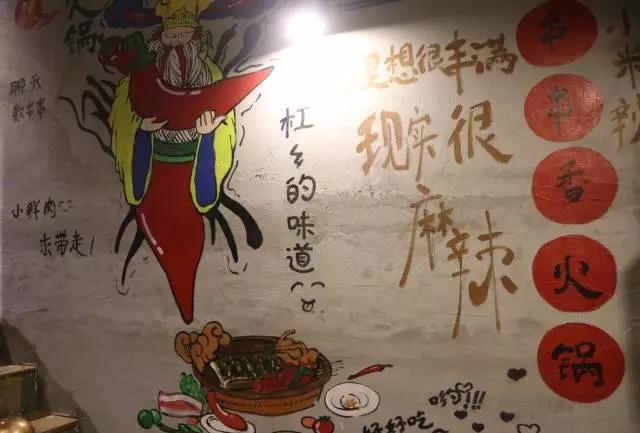 火锅
聊天
数串串
小鲜肉
求带走!
杠乡的味道
理想很丰满
现实很
麻辣
串串香火锅
小米辣
哟!!!
好好吃